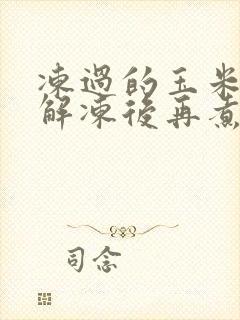 凍過的玉米
解凍後再煮
司念